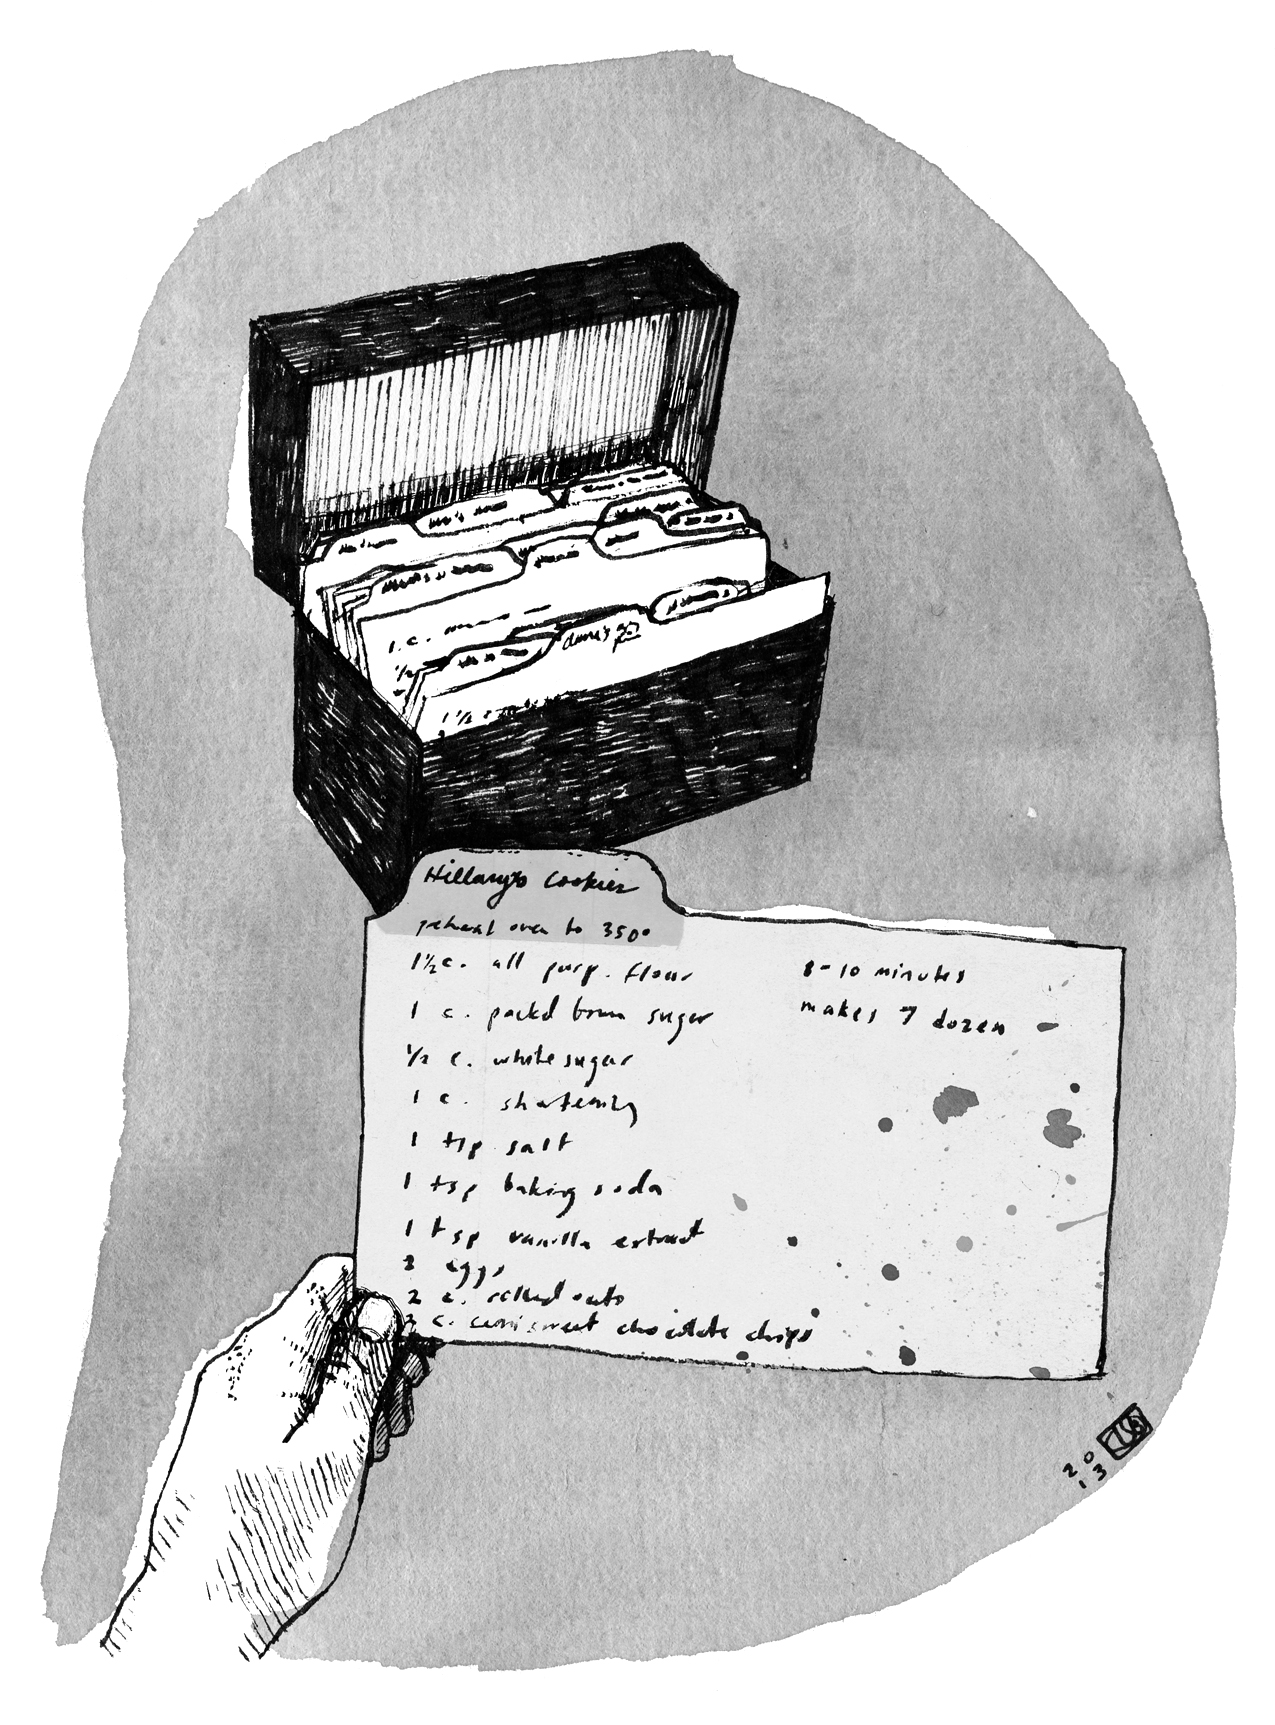 Anne's
Hillary's Cookies
preheat oven to 350°
1½ c. all purp. flour
1 c. packd brown sugar
½ c. white sugar
1 c. shortening
1 tsp salt
1 tsp baking soda
1 tsp vanilla extract
2 eggs
2 c. rolled oats
c. semisweet chocolate chips
8-10 minutes
makes 7 dozen
2013